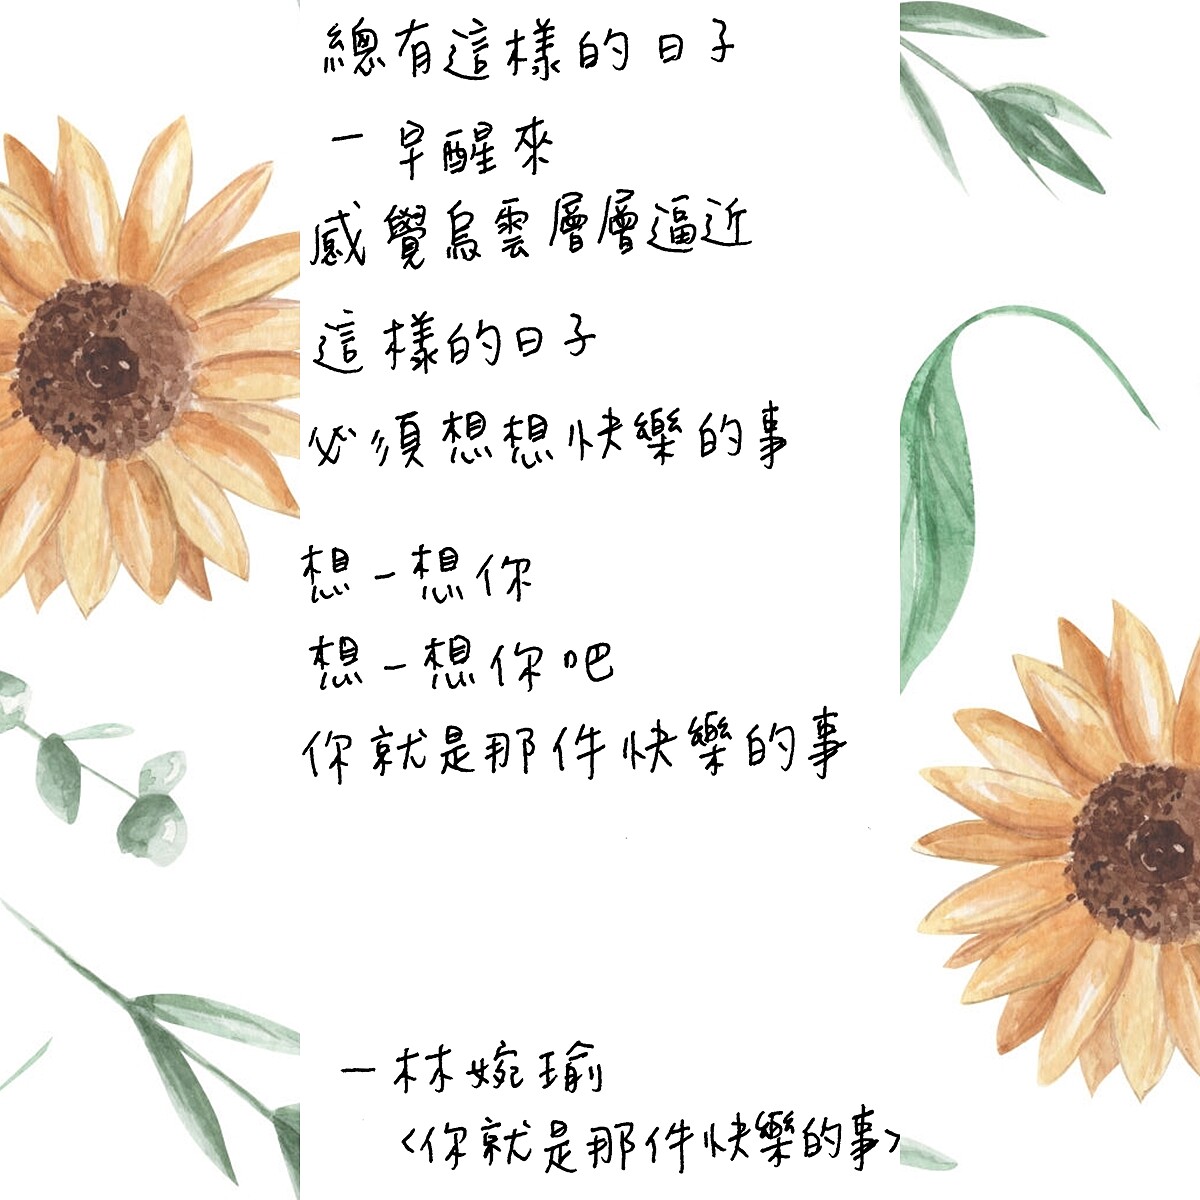 總有這樣的日子
一早醒來
感覺烏雲層層逼近
這樣的日子
必須想想快樂的事
想一想你
想一想你吧
你就是那件快樂的事
—林婉瑜
<你就是那件快樂的事>